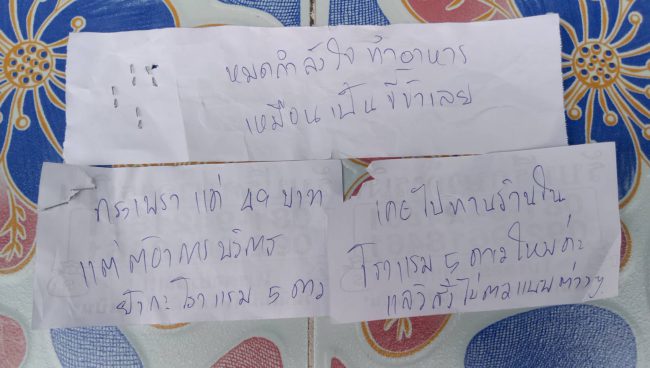 หมดกำลังใจ ทำอาหาร
เหมือนเป็น ขี้ข้าเลย
กระเพรา แค่ 49 บาท
แต่ ต้องการ บริการ
ยังกะ โรงแรม 5 ดาว
ไปทานร้านใน
โรงแรม 5 ดาวไหมค่ะ
แล้วสั่งไข่ดาวแบบต่างๆ